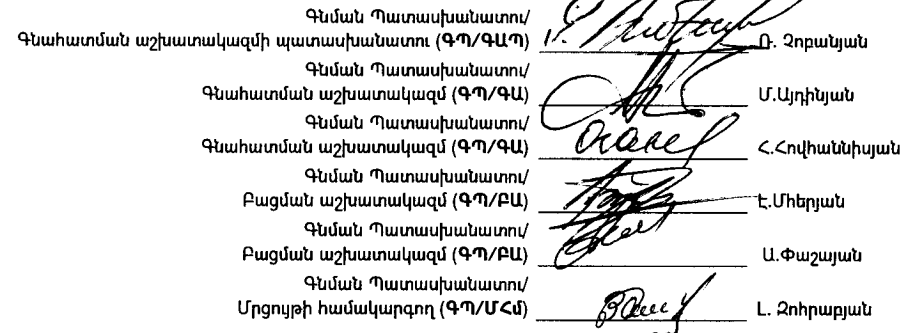 Գնման Պատասխանատու/
Գնահատման աշխատակազմի պատասխանատու (ԳՊ/ԳԱՊ) Ռ. Չոբանյան
Գնման Պատասխանատու/
Գնահատման աշխատակազմ (ԳՊ/ԳԱ) Մ.Այդինյան
Գնման Պատասխանատու/
Գնահատման աշխատակազմ (ԳՊ/ԳԱ) Հ.Հովհաննիսյան
Գնման Պատասխանատու/
Բացման աշխատակազմ (ԳՊ/ԲԱ) Է.Մհերյան
Գնման Պատասխանատու/
Բացման աշխատակազմ (ԳՊ/ԲԱ) Ա.Փաշայան
Գնման Պատասխանատու/
Մրցույթի համակարգող (ԳՊ/ՄՀմ) Լ. Զոհրաբյան